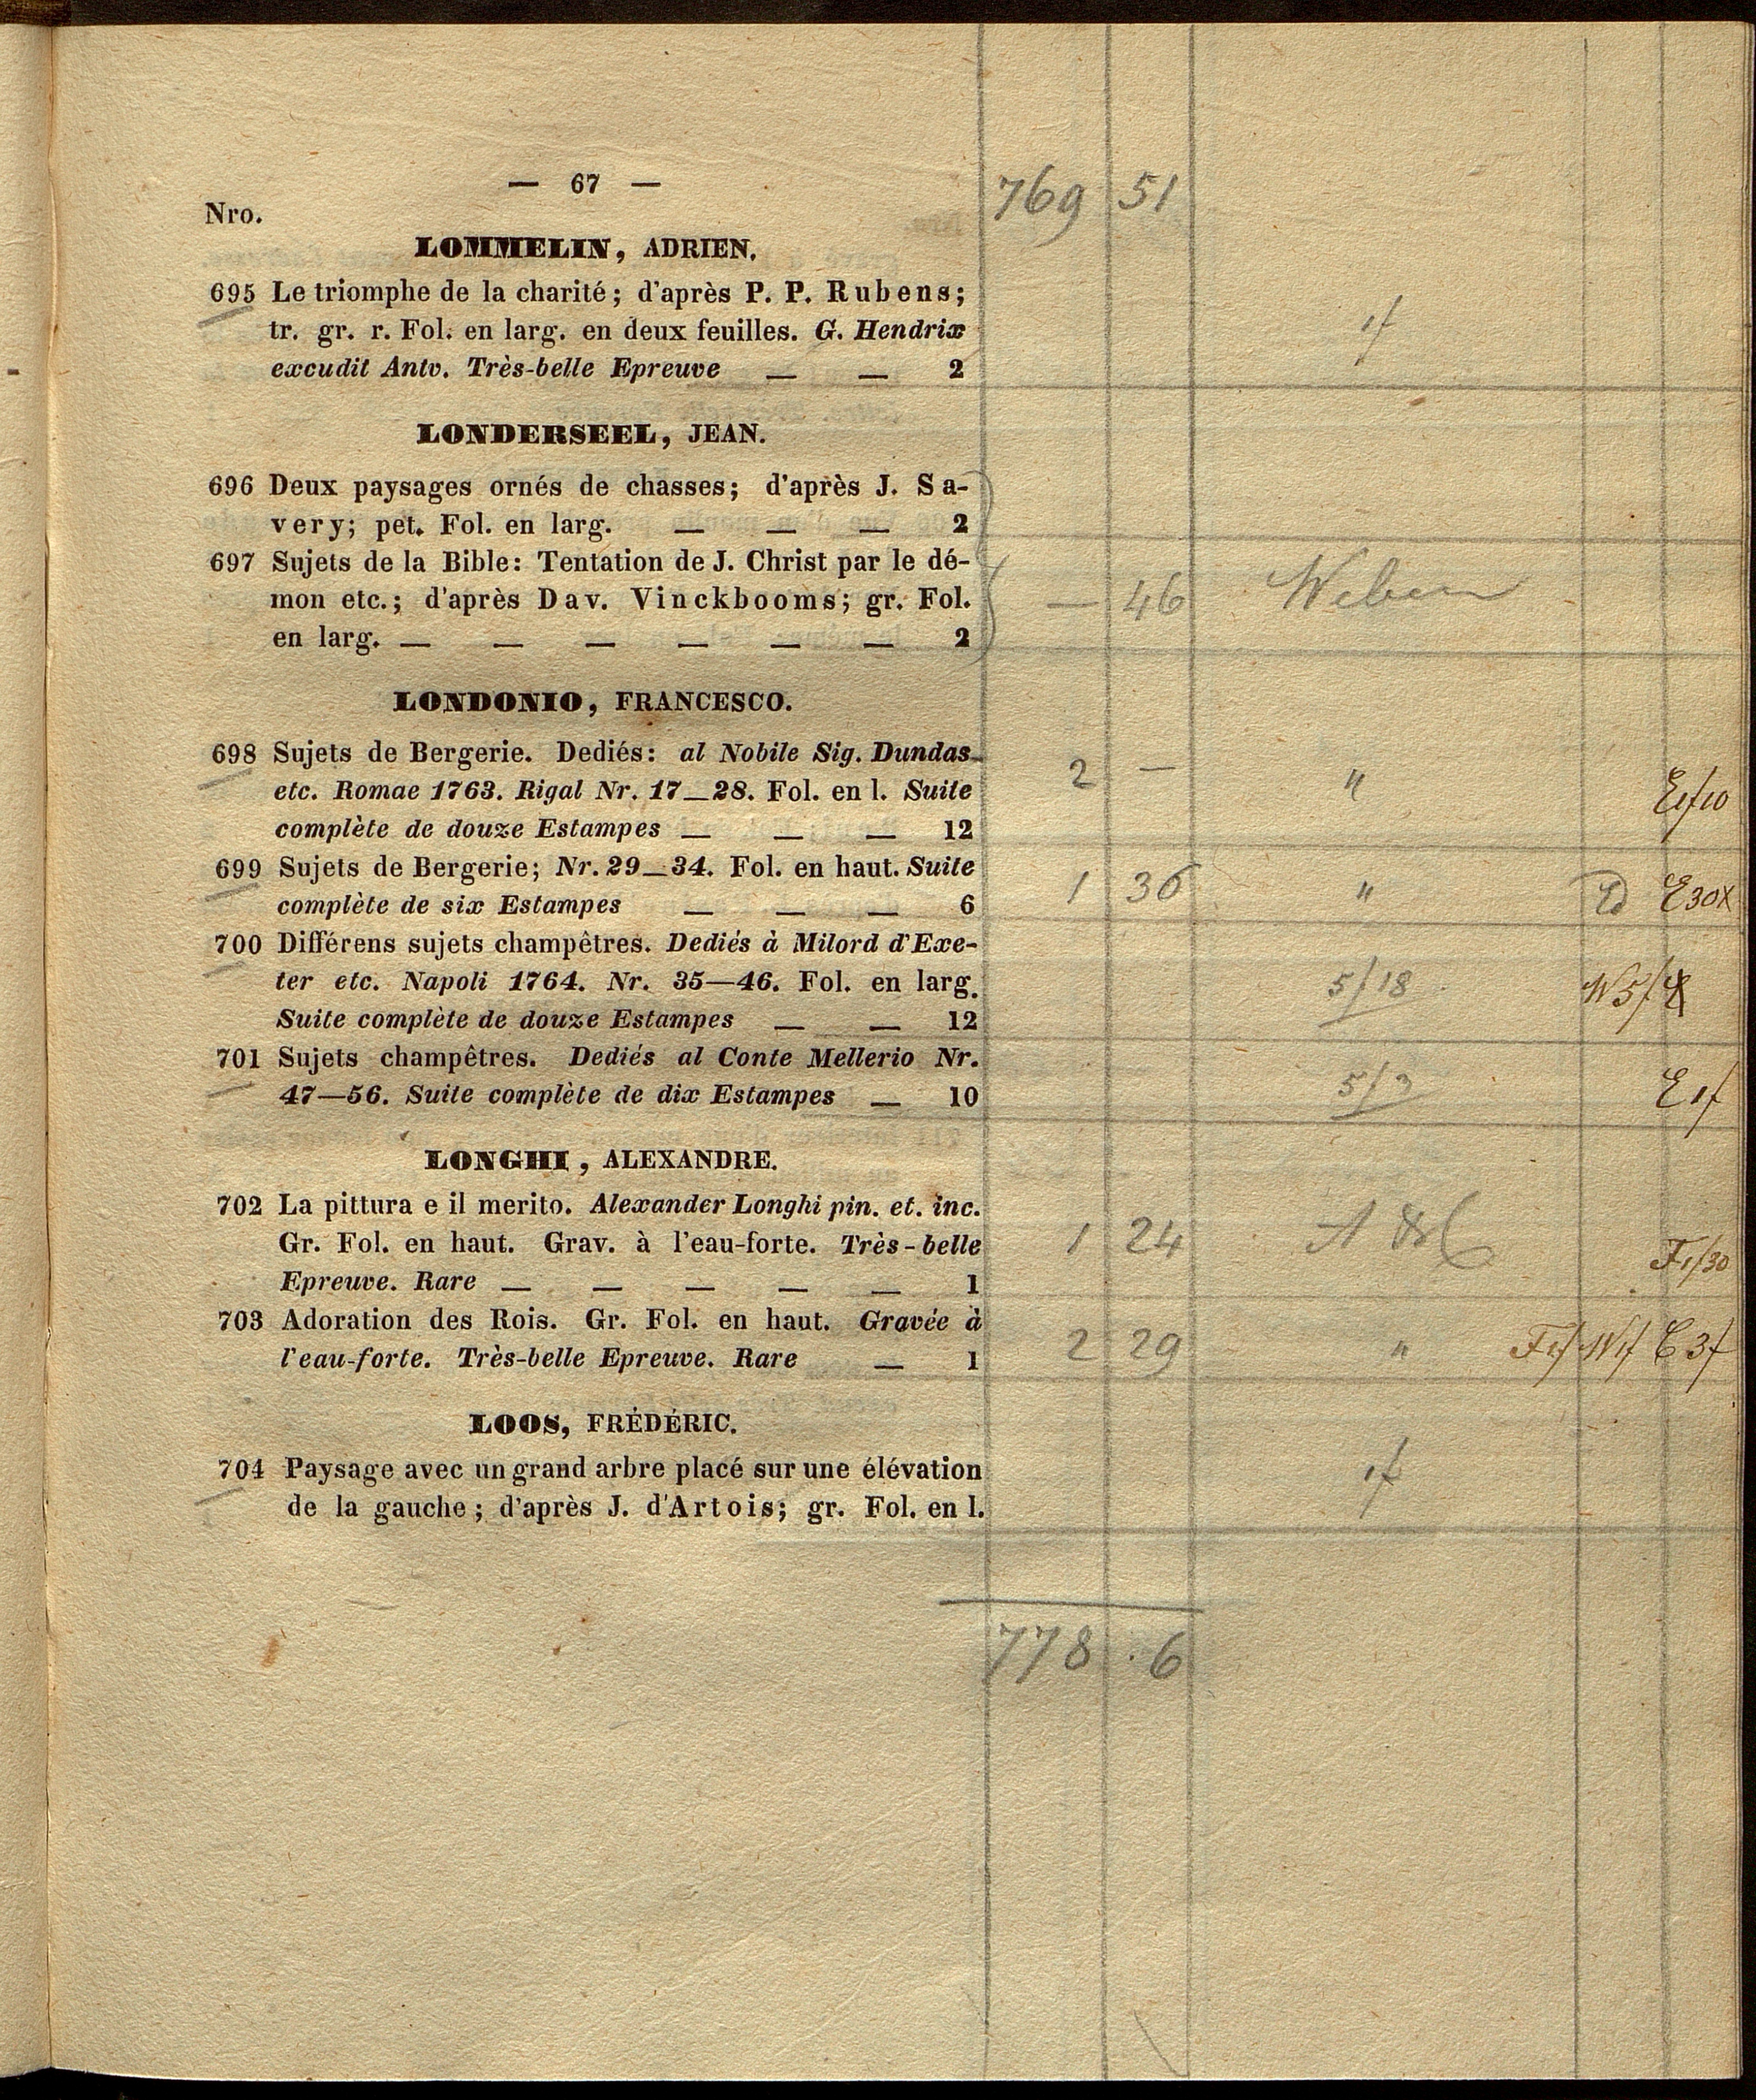 — 67 —
769 51
Nro.
LOMMELIN, ADRIEN.
695 Le triomphe de la charité; d'après P. P. Rubens;
tr. gr. r. Fol. en larg. en deux feuilles. G. Hendrix
excudit Antv. Très-belle Epreuve — — 2
1f
LONDERSEEL, JEAN.
696 Deux paysages ornés de chasses; d'après J. Sa-
very; pet. Fol. en larg. — — — 2
697 Sujets de la Bible: Tentation de J. Christ par le dé-
mon etc.; d'après Dav. Vinckbooms; gr. Fol.
en larg. — — — — — — 2
— 46 Weber
LONDONIO, FRANCESCO.
698 Sujets de Bergerie. Dediés: al Nobile Sig. Dundas
etc. Romae 1763. Rigal Nr. 17—28. Fol. en l. Suite
complète de douze Estampes — — — 12
2 — " E1f10
699 Sujets de Bergerie; Nr. 29—34. Fol. en haut. Suite
complète de six Estampes — — — 6
1 36 " E30x
700 Différens sujets champêtres. Dediés à Milord d'Exe-
ter etc. Napoli 1764. Nr. 35—46. Fol. en larg.
Suite complète de douze Estampes — — 12
5/18 W5f
701 Sujets champêtres. Dediés al Conte Mellerio Nr.
47—56. Suite complète de dix Estampes — 10
5/3 E1f
LONGHI, ALEXANDRE.
702 La pittura e il merito. Alexander Longhi pin. et. inc.
Gr. Fol. en haut. Grav. à l'eau-forte. Très-belle
Epreuve. Rare — — — — — 1
1 24 F1/30
703 Adoration des Rois. Gr. Fol. en haut. Gravée à
l'eau-forte. Très-belle Epreuve. Rare — 1
2 29 " F1f W1f C3f
LOOS, FRÉDÉRIC.
704 Paysage avec un grand arbre placé sur une élévation
de la gauche; d'après J. d'Artois; gr. Fol. en l.
1f
778 . 6